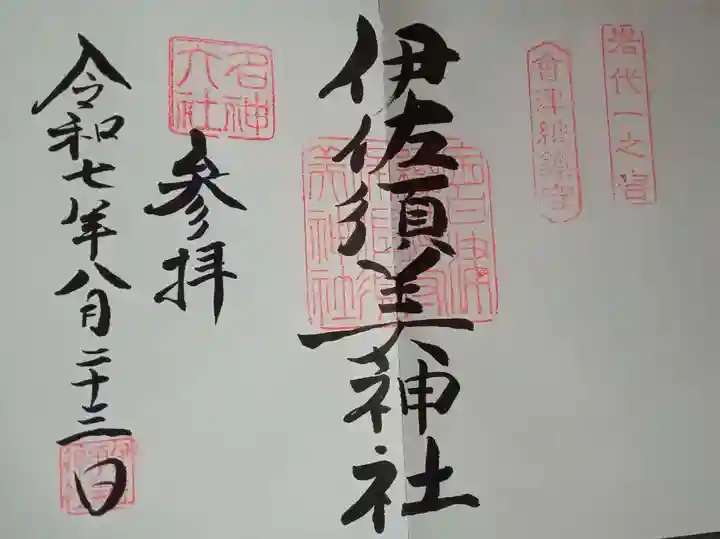 岩代一之宮
會津総鎮守
伊佐須美神社
名神大社
参拝
令和七年八月二十三日